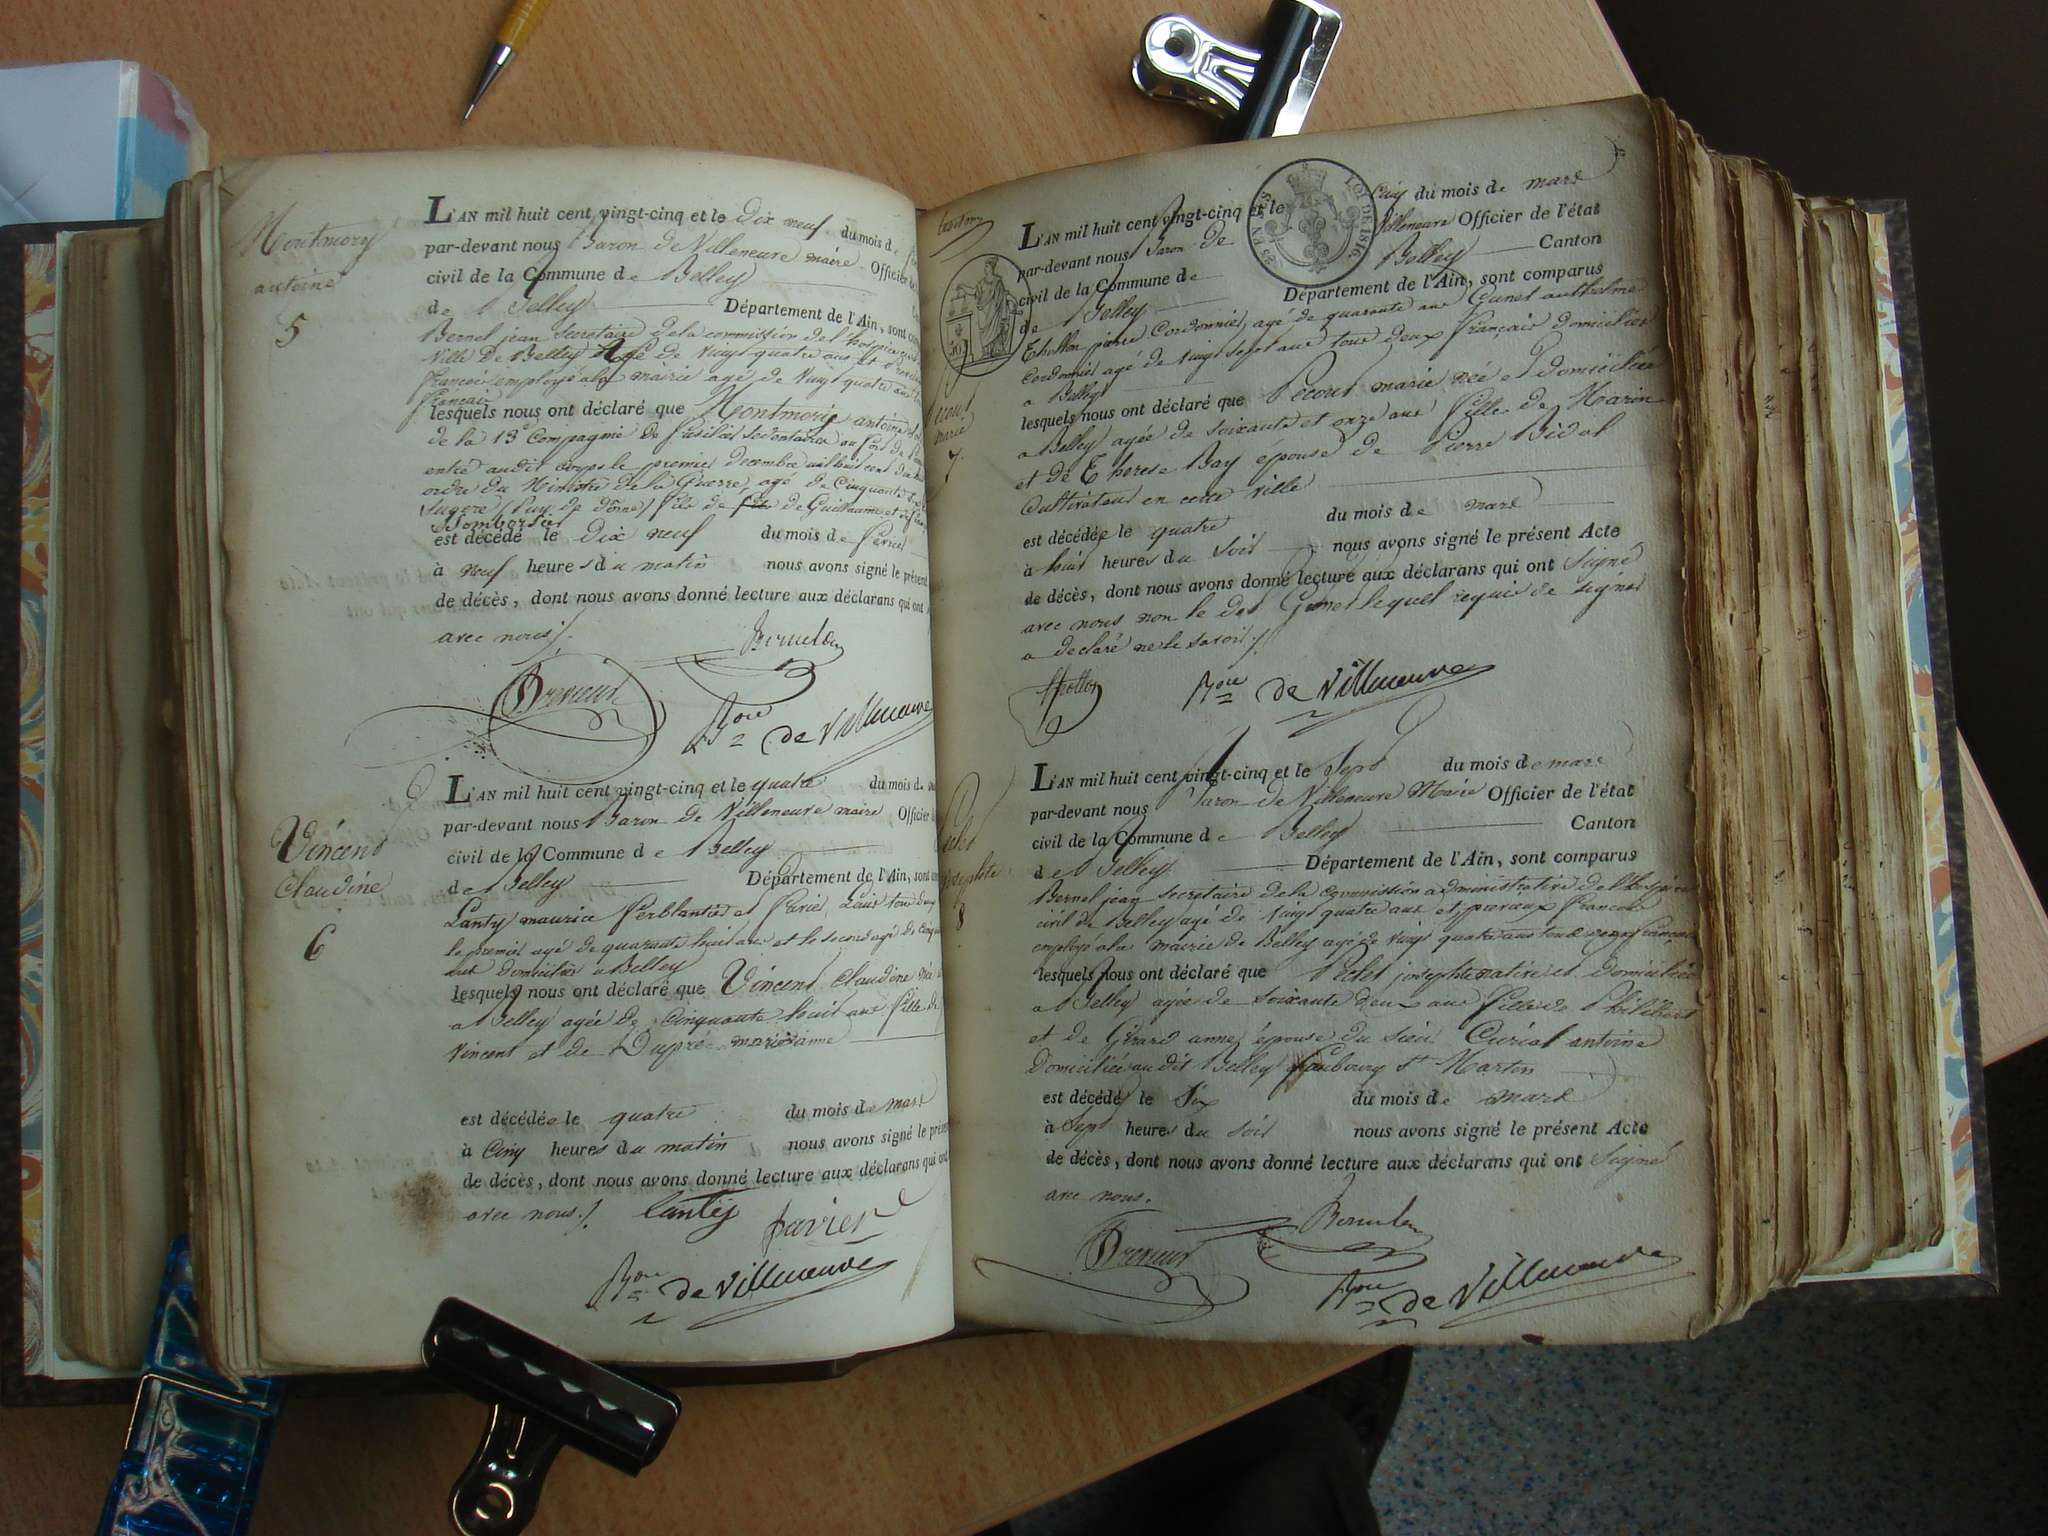 Montmory
antoine
5
L'AN mil huit cent vingt-cinq et le Dix neuf du mois de
par-devant nous Baron de Villeneuve maire Officier
civil de la Commune de Belley
de Belley Département de l'Ain, sont
Bernel jean Secretaire de la commission de l'hospice
Ville De Belley agé de Vingt quatre ans et
français employé a la mairie agé de Vingt quatre ans
français
lesquels nous ont déclaré que Montmory antoine
de la 13e Compagnie de fusilier Sedentaire au fort de
entré audit Corps le premier Decembre mil huit cent
ordre du Ministre de la Guerre, agé de Cinquante
(Puy de dome) fils de de Guillaume et de
est décédé le Dix neuf du mois de fevrier
à neuf heures du matin nous avons signé le présent
de décès, dont nous avons donné lecture aux déclarans qui ont
avec nous
Bon de Villeneuve
Vincent
Claudine
6
L'AN mil huit cent vingt-cinq et le quatre du mois de
par-devant nous Baron de Villeneuve maire Officier
civil de la Commune de Belley
de Belley Département de l'Ain, sont
Lanty maurice ferblantier et Favier Louis tous deux
le premier agé de quarante huit ans et le second agé de Cinq
ans domiciliés a Belley
lesquels nous ont déclaré que Vincent Claudine née
a Belley agée de Cinquante huit ans fille de
Vincent et de Dupré marianne
est décédée le quatre du mois de mars
à Cinq heures du matin nous avons signé le présent
de décès, dont nous avons donné lecture aux déclarans qui ont
avec nous Lantÿ
Favier
Bon de Villeneuve
LOI DE 1816
L'AN mil huit cent vingt-cinq et le Cinq du mois de mars
par-devant nous Baron de Villeneuve Officier de l'état
civil de la Commune de Belley Canton
de Belley Département de l'Ain, sont comparus
pierre Cordonnier, agé de quarante ans Cunet anthelme
Cordonnier agé de vingt sept ans tous deux français domiciliés
a Belley
marie
7
lesquels nous ont déclaré que Pecout marie née et domiciliée
a Belley agée de soixante et onze ans fille de Marin
et de Therese Bay épouse de Pierre Bidal
Cultivateur en cette ville
est décédée le quatre du mois de mars
à huit heures du soir nous avons signé le présent Acte
de décès, dont nous avons donné lecture aux déclarans qui ont signé
avec nous non le dit Cunet lequel requis de signer
a declaré ne le savoir
Bon de Villeneuve
8
L'AN mil huit cent vingt-cinq et le Sept du mois de mars
par-devant nous Baron de Villeneuve Maire Officier de l'état
civil de la Commune de Belley Canton
de Belley Département de l'Ain, sont comparus
Bernel jean secretaire de la commission administrative de l'hospice
civil de Belley agé de Vingt quatre ans et français
employé a la mairie de Belley agé de vingt quatre ans tous français
lesquels nous ont déclaré que josephte native et domiciliée
a Belley agée de soixante deux ans fille de Philibert
et de Girard anne, épouse du sieur Curial antoine
Domiciliée au dit Belley faubourg St Martin
est décédé le Six du mois de mars
à Sept heures du soir nous avons signé le présent Acte
de décès, dont nous avons donné lecture aux déclarans qui ont Signé
avec nous.
Bon de Villeneuve